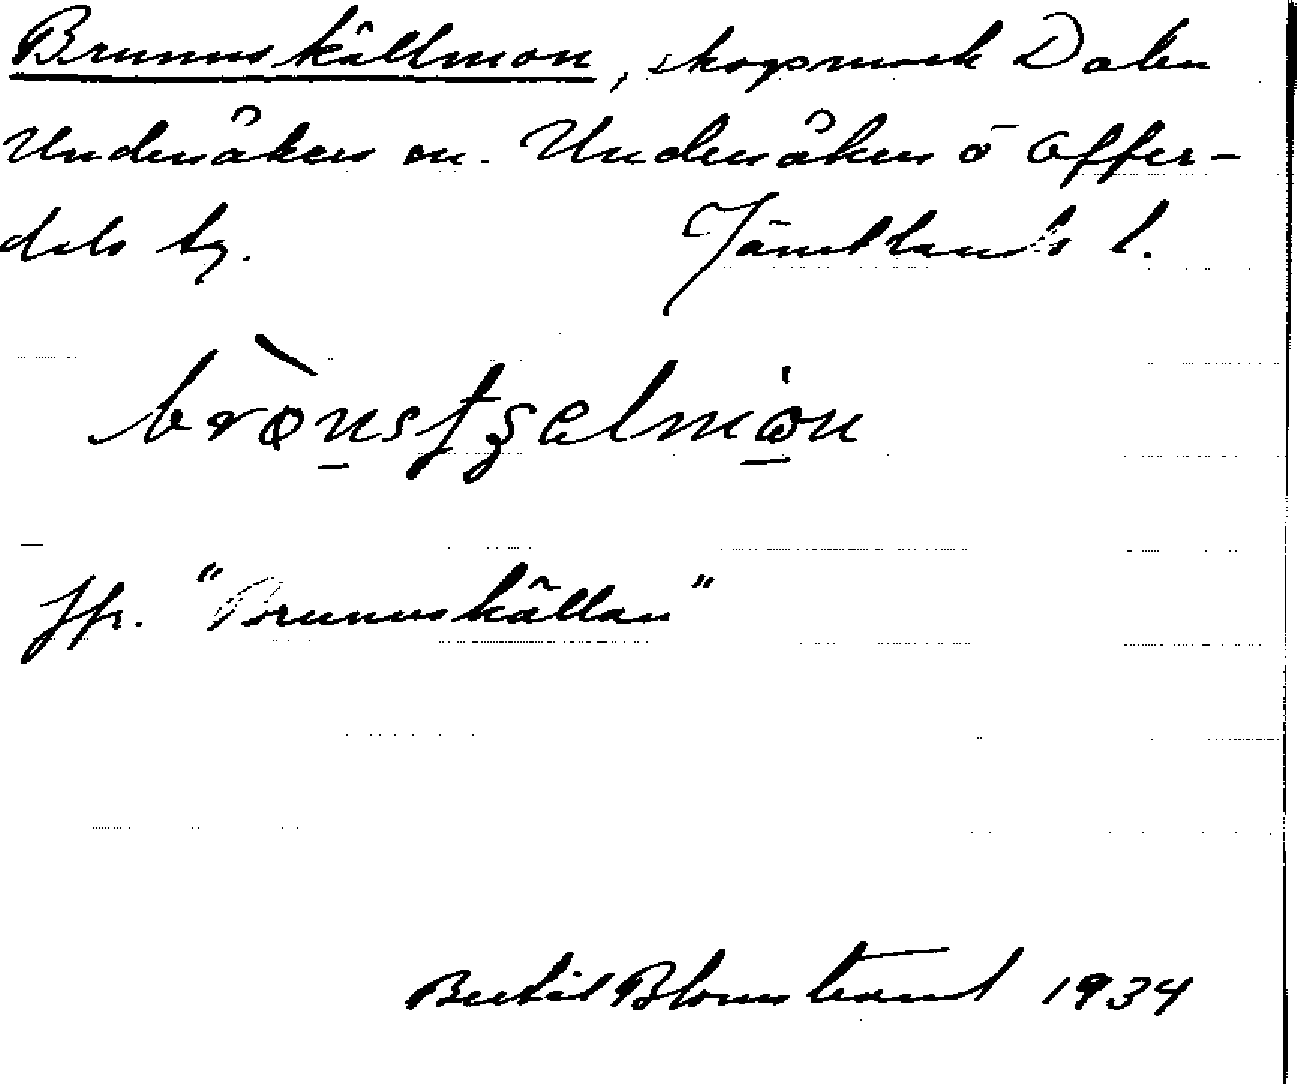 Brunnskällmon, skogsmark Dalen
Undersåkers sn. Undersåkers o Offer-
dals tg. Jämtlands l.
Jfr. "Brunnskällan"
Bertil Blomstrand 1934